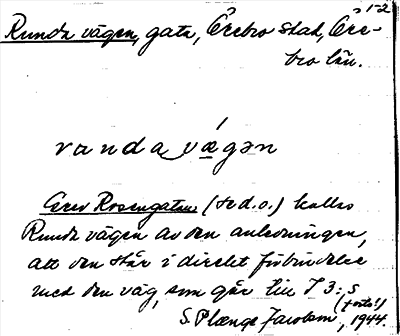 1-2
Runda vägen, gata, Örebro stad, Öre-
bro län.
runda vǽgən
Grev Rosengatan (se d.o.) kallas
Runda vägen av den anledningen,
att den står i direkt förbindelse
med den väg, som går till I 3:s
1944.